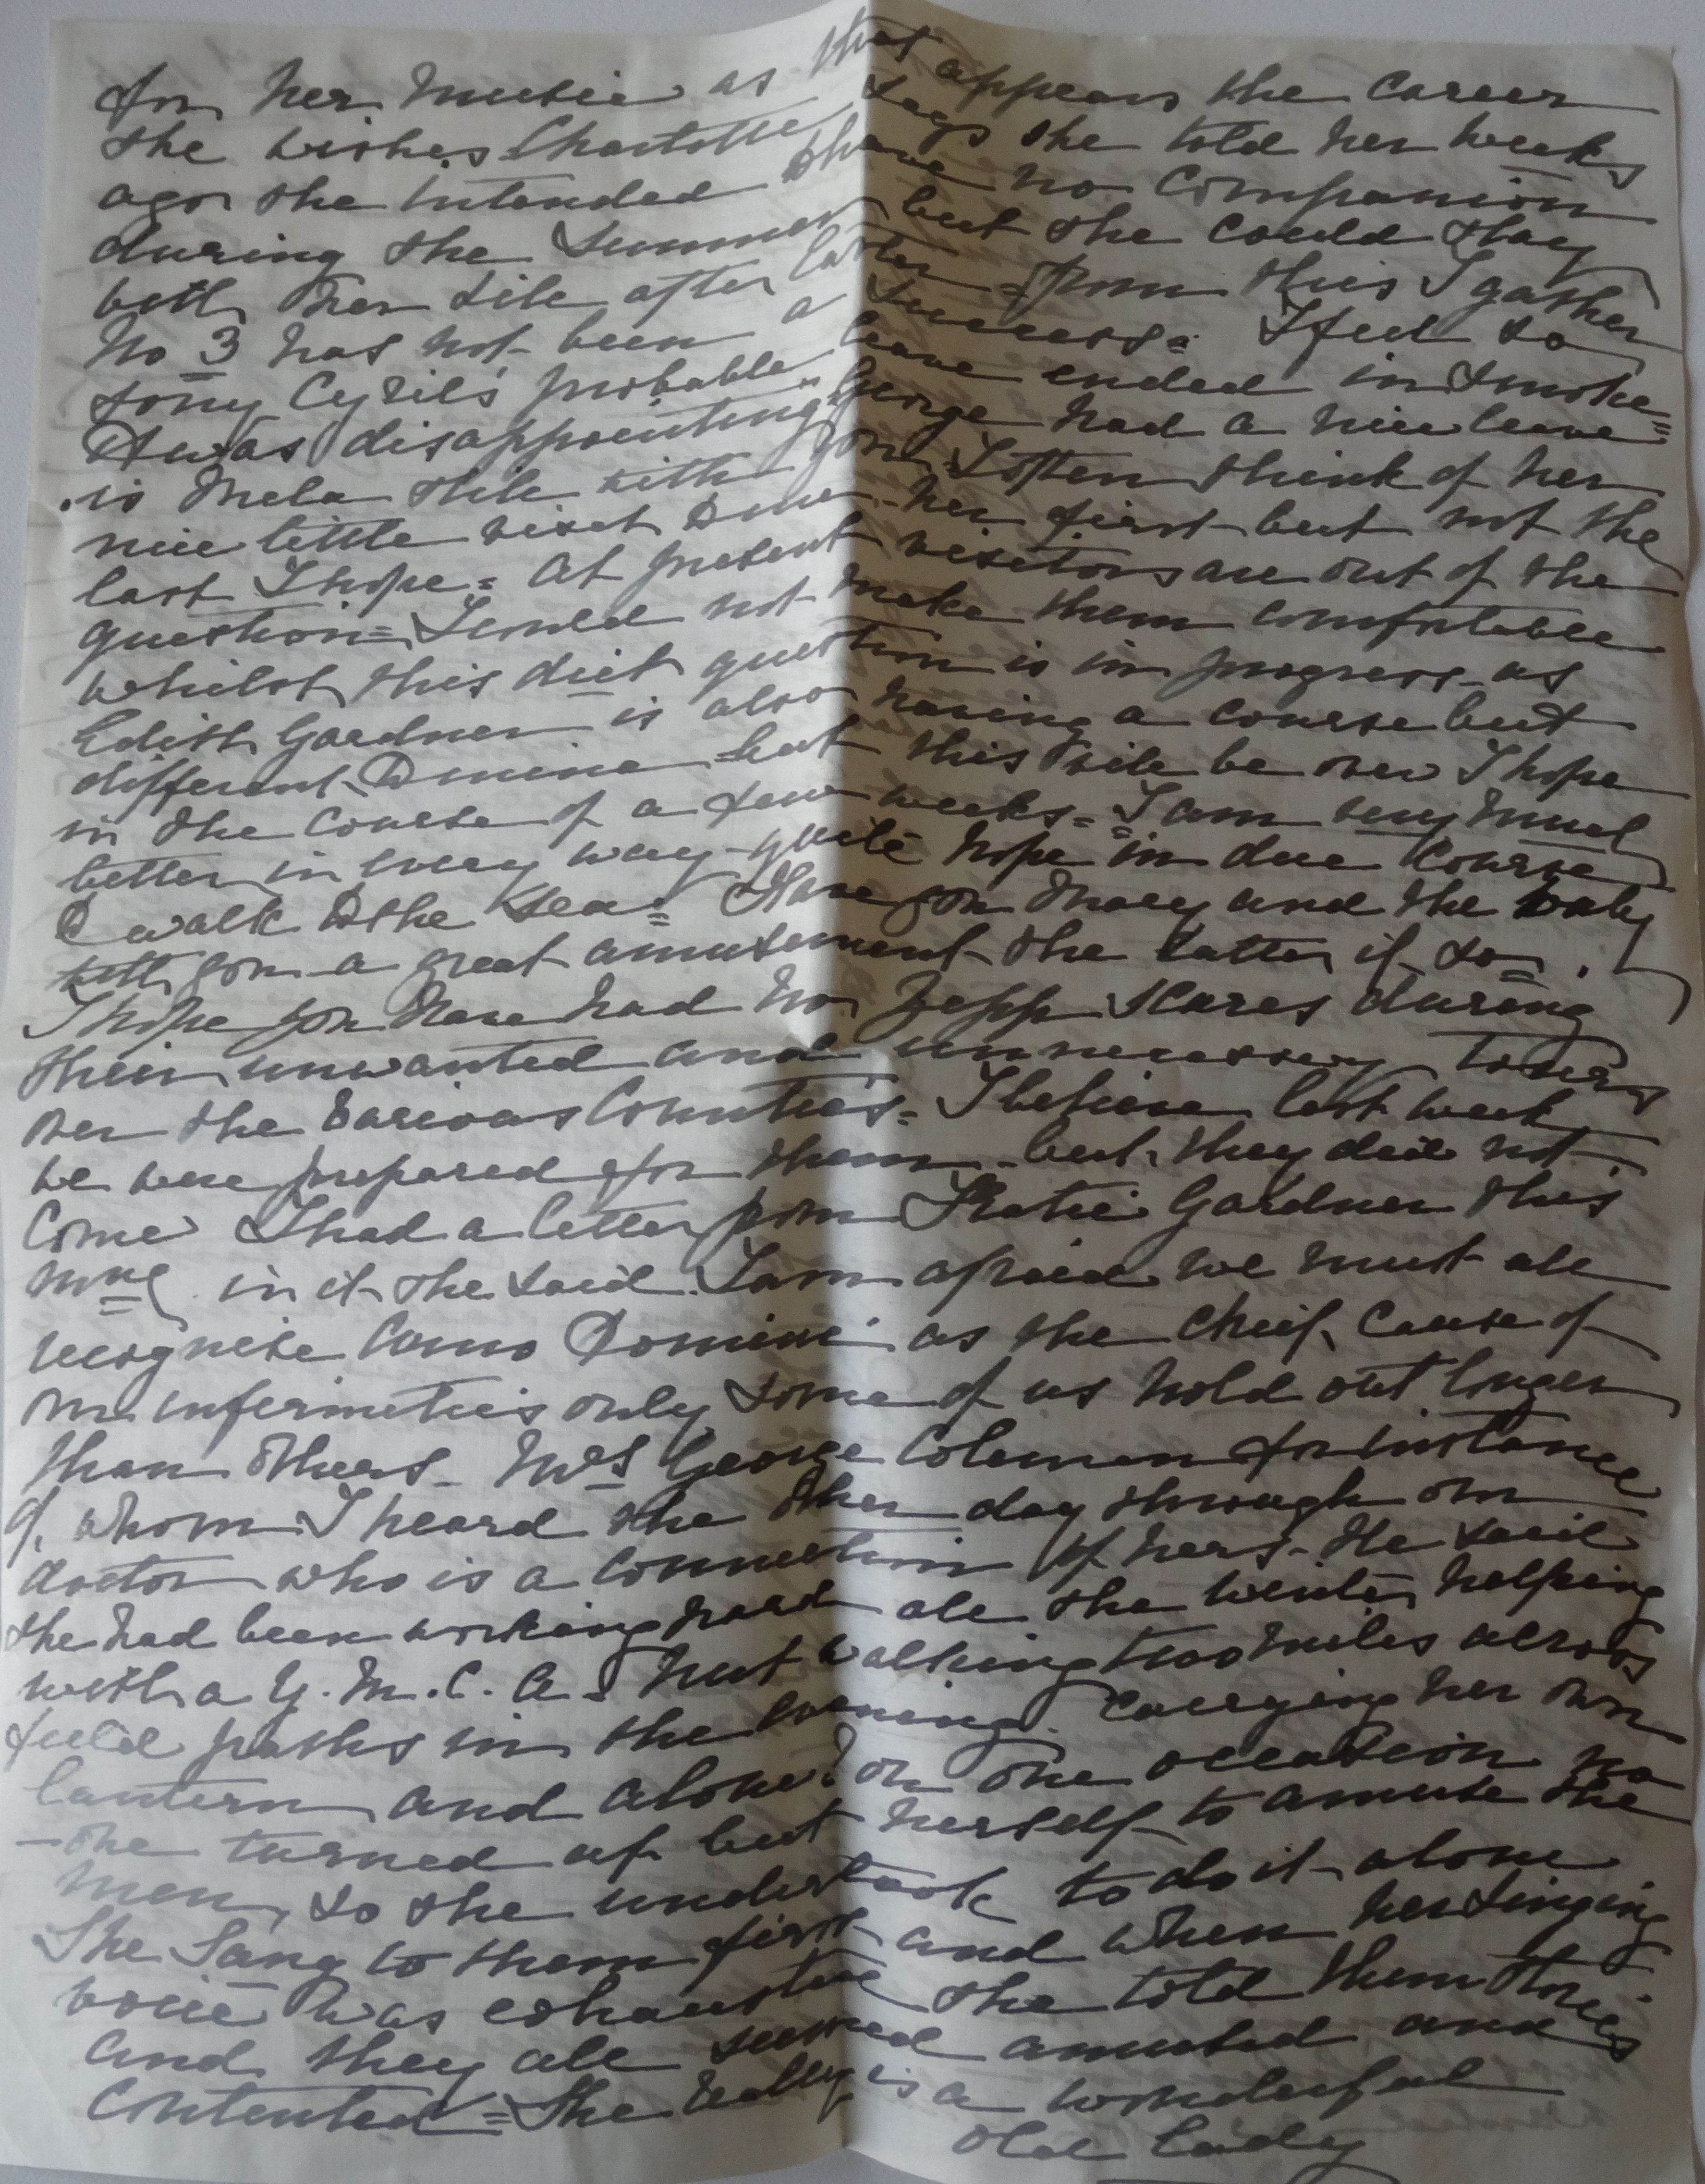 for her music as that appears the career
she wishes. Charlotte says she told her weeks
ago she intended to have no companion
during the Summer but she could stay
with her till after Easter - from this I gather
No 3 has not been a success = I feel so
sorry Cyril's probable leave ended in smoke =
It was disappointing. George had a nice leave =
is Mela still with you. I often think of her
nice little visit to me - her first but not the
last I hope = At present visitors are out of the
question = I could not make them comfortable
whilst this diet question is in progress - as
Edith Gardner is also having a course but
different to mine - but this will be over I hope
in the course of a few weeks = I am very much
better in every way - quite hope in due course
to walk to the sea = Have you and the baby
with you - a great amusement the latter if so = .
I hope you have had no Zepp scares during
their unwanted and unnecessary tours
over the various Counties = I believe last week
we were prepared for them - but they did not
come I had a letter from Katie Gardner this
mng in it she said. I am afraid we must all
recognise Anno Domini as the cheif cause of
our infirmities only some of us hold out longer
than others - Mrs George Coleman for instance
of whom I heard the other day through our
doctor who is a connection of hers - He said
she had been working hard all the winter helping
with a Y.M.C.A. Hut walking two miles across
field paths in the evening. Carrying her own
lantern and alone! on one occassion no
-one turned up but herself to amuse the
men, so she undertook to do it alone
She Sang to them first and when her singing
voice was exhausted she told them stories
and they all seemed amused and
contented = She really is a wonderful
old lady